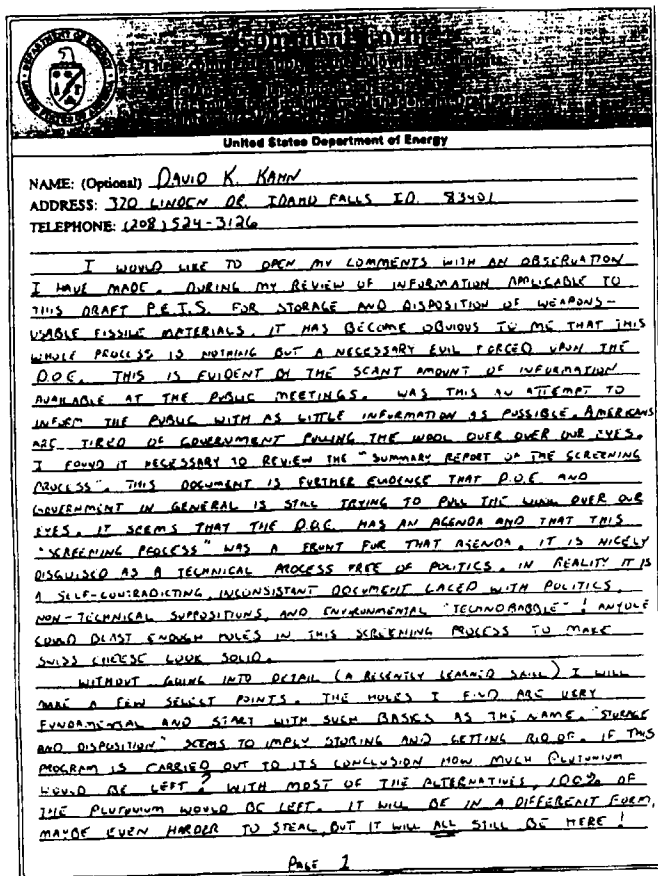 Comment Form
DEPARTMENT OF ENERGY
UNITED STATES OF AMERICA
United States Department of Energy
NAME: (Optional) DAVID K. KAHN
ADDRESS: 320 LINDEN DR. IDAHO FALLS ID. 83401
TELEPHONE: (208) 524-3126
I WOULD LIKE TO OPEN MY COMMENTS WITH AN OBSERVATION
I HAVE MADE. DURING MY REVIEW OF INFORMATION APPLICABLE TO
THIS DRAFT P.E.I.S. FOR STORAGE AND DISPOSITION OF WEAPONS-
USABLE FISSILE MATERIALS. IT HAS BECOME OBVIOUS TO ME THAT THIS
WHOLE PROCESS IS NOTHING BUT A NECESSARY EVIL FORCED UPON THE
D.O.E. THIS IS EVIDENT BY THE SCANT AMOUNT OF INFORMATION
AVAILABLE AT THE PUBLIC MEETINGS. WAS THIS AN ATTEMPT TO
INFORM THE PUBLIC WITH AS LITTLE INFORMATION AS POSSIBLE. AMERICANS
ARE TIRED OF GOVERNMENT PULLING THE WOOL OVER OVER OUR EYES.
I FOUND IT NECESSARY TO REVIEW THE "SUMMARY REPORT OF THE SCREENING
PROCESS". THIS DOCUMENT IS FURTHER EVIDENCE THAT D.O.E AND
GOVERNMENT IN GENERAL IS STILL TRYING TO PULL THE WOOL OVER OUR
EYES. IT SEEMS THAT THE D.O.E. HAS AN AGENDA AND THAT THIS
"SCREENING PROCESS" WAS A FRONT FOR THAT AGENDA. IT IS NICELY
DISGUISED AS A TECHNICAL PROCESS FREE OF POLITICS. IN REALITY IT IS
A SELF-CONTRADICTING, INCONSISTANT DOCUMENT LACED WITH POLITICS,
NON-TECHNICAL SUPPOSITIONS, AND ENVIRONMENTAL "TECHNOBABBLE"! ANYONE
COULD BLAST ENOUGH HOLES IN THIS SCREENING PROCESS TO MAKE
SWISS CHEESE LOOK SOLID.
WITHOUT GOING INTO DETAIL (A RECENTLY LEARNED SKILL) I WILL
MAKE A FEW SELECT POINTS. THE HOLES I FIND ARE VERY
FUNDAMENTAL AND START WITH SUCH BASICS AS THE NAME. "STORAGE
AND DISPOSITION" SEEMS TO IMPLY STORING AND GETTING RID OF. IF THIS
PROGRAM IS CARRIED OUT TO ITS CONCLUSION HOW MUCH PLUTONIUM
WOULD BE LEFT? WITH MOST OF THE ALTERNATIVES, 100% OF
THE PLUTONIUM WOULD BE LEFT. IT WILL BE IN A DIFFERENT FORM,
MAYBE EVEN HARDER TO STEAL, BUT IT WILL ALL STILL BE HERE!
PAGE 1